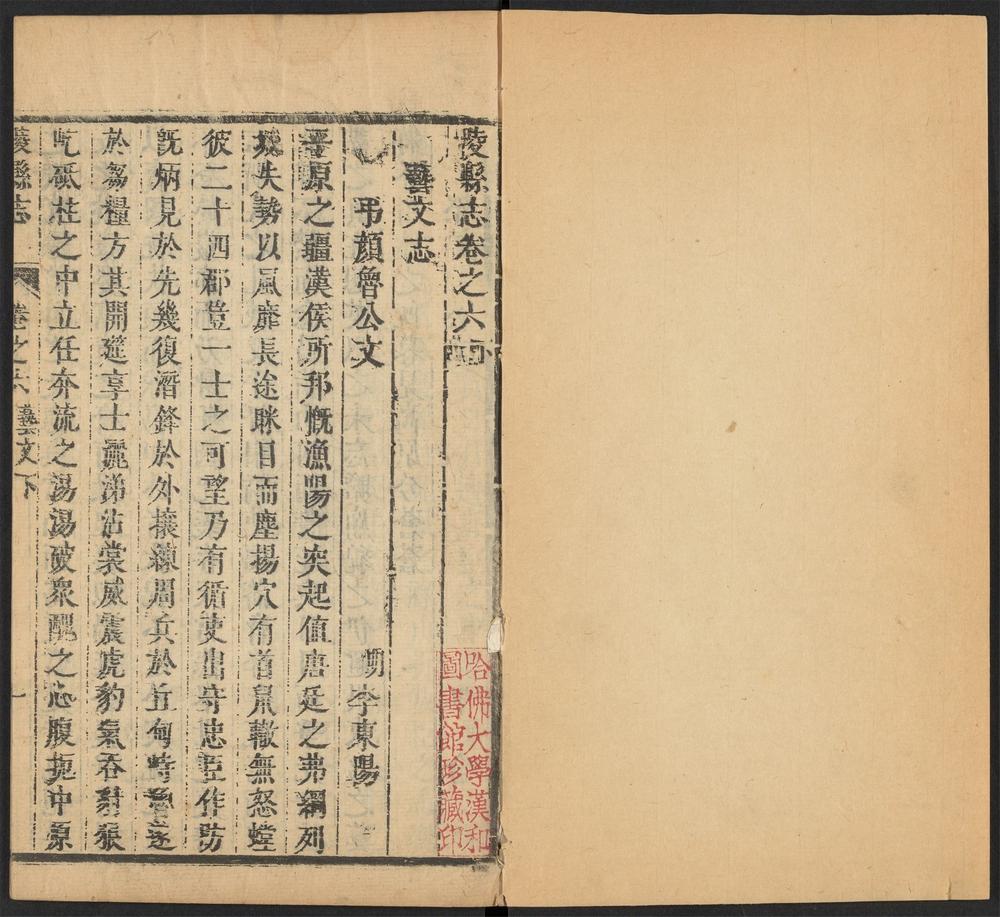 陵縣志卷之六下
藝文志
弔顏魯公文 明 李東陽
平原之疆漢侯所邦慨漁陽之突起值唐廷之弗綱列
城失勢以風靡長途眯目而塵揚穴有首鼠轍無怒螳
彼二十四郡豈一士之可望乃有循吏出守忠臣作防
既炳見於先幾復潛鋒於外攘練周兵於丘甸峙魯
於芻糧方其開筵享士麗涕沾裳威震虎豹氣吞豺狼
屹砥柱之中立任奔流之湯湯破眾醜之心腹扼中原
陵縣志 卷之六 藝文下 一
哈佛大學漢和
圖書館珍藏印